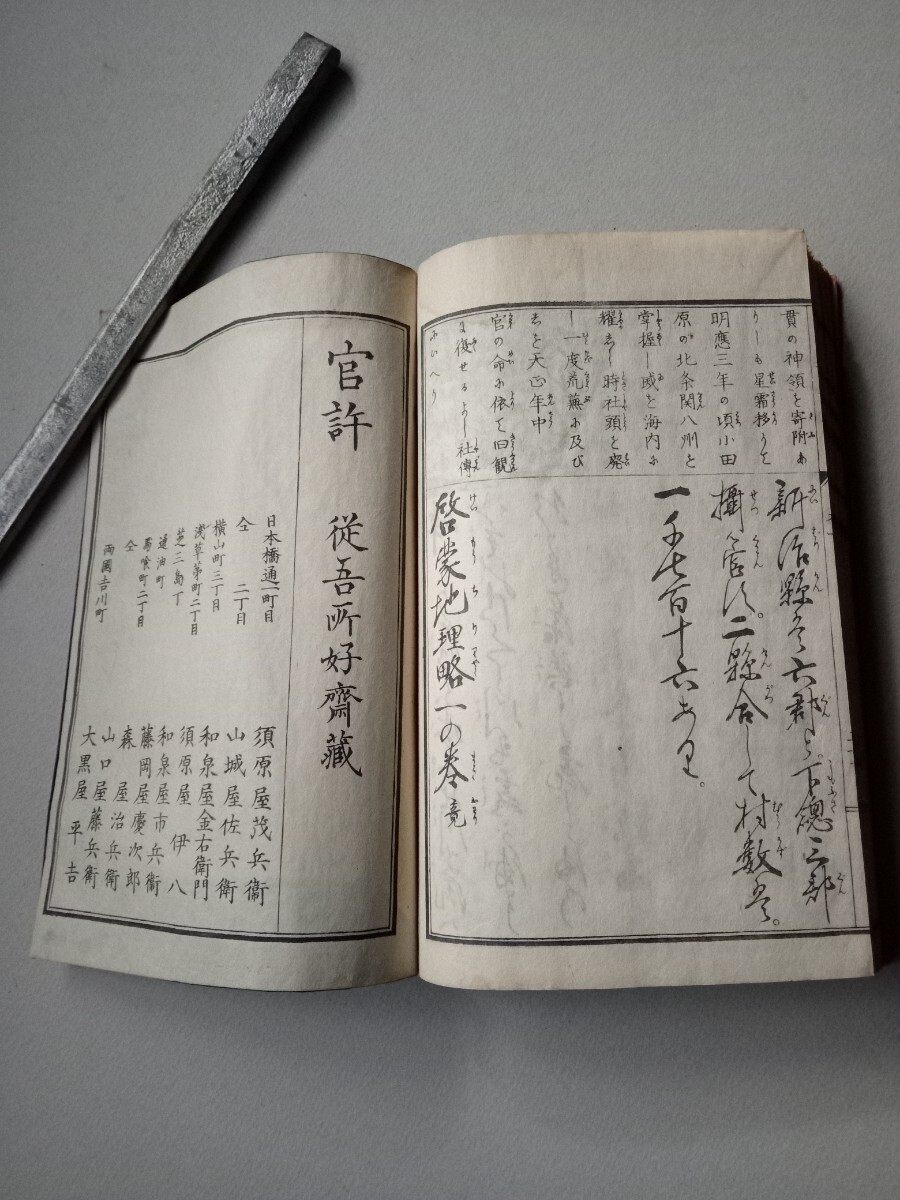 貫の神領を寄附あ
りしも星霜移りて
明應三年の頃小田
原の北条関八州を
掌握し威を海内に
耀ししよ時社頭を廃
し一度荒蕪に及び
しを天正年中
官の命に依て旧観
に復せるよし社傳
にいへり
新治縣は六郡と。下總三郡
攝管す。二縣合して村數は。
一千七百十六あり。
啓蒙地理略一の巻竟
官許 從吾所好齋藏
日本橋通一町目 須原屋茂兵衞
仝 二丁目 山城屋佐兵衛
横山町三丁目 和泉屋金右衛門
淺草茅町二丁目 須原屋伊八
芝三島丁 和泉屋市兵衞
通油町 藤岡屋慶次郎
馬喰町二丁目 森屋治兵衛
仝 山口屋藤兵衛
両國吉川町 大黒屋平吉